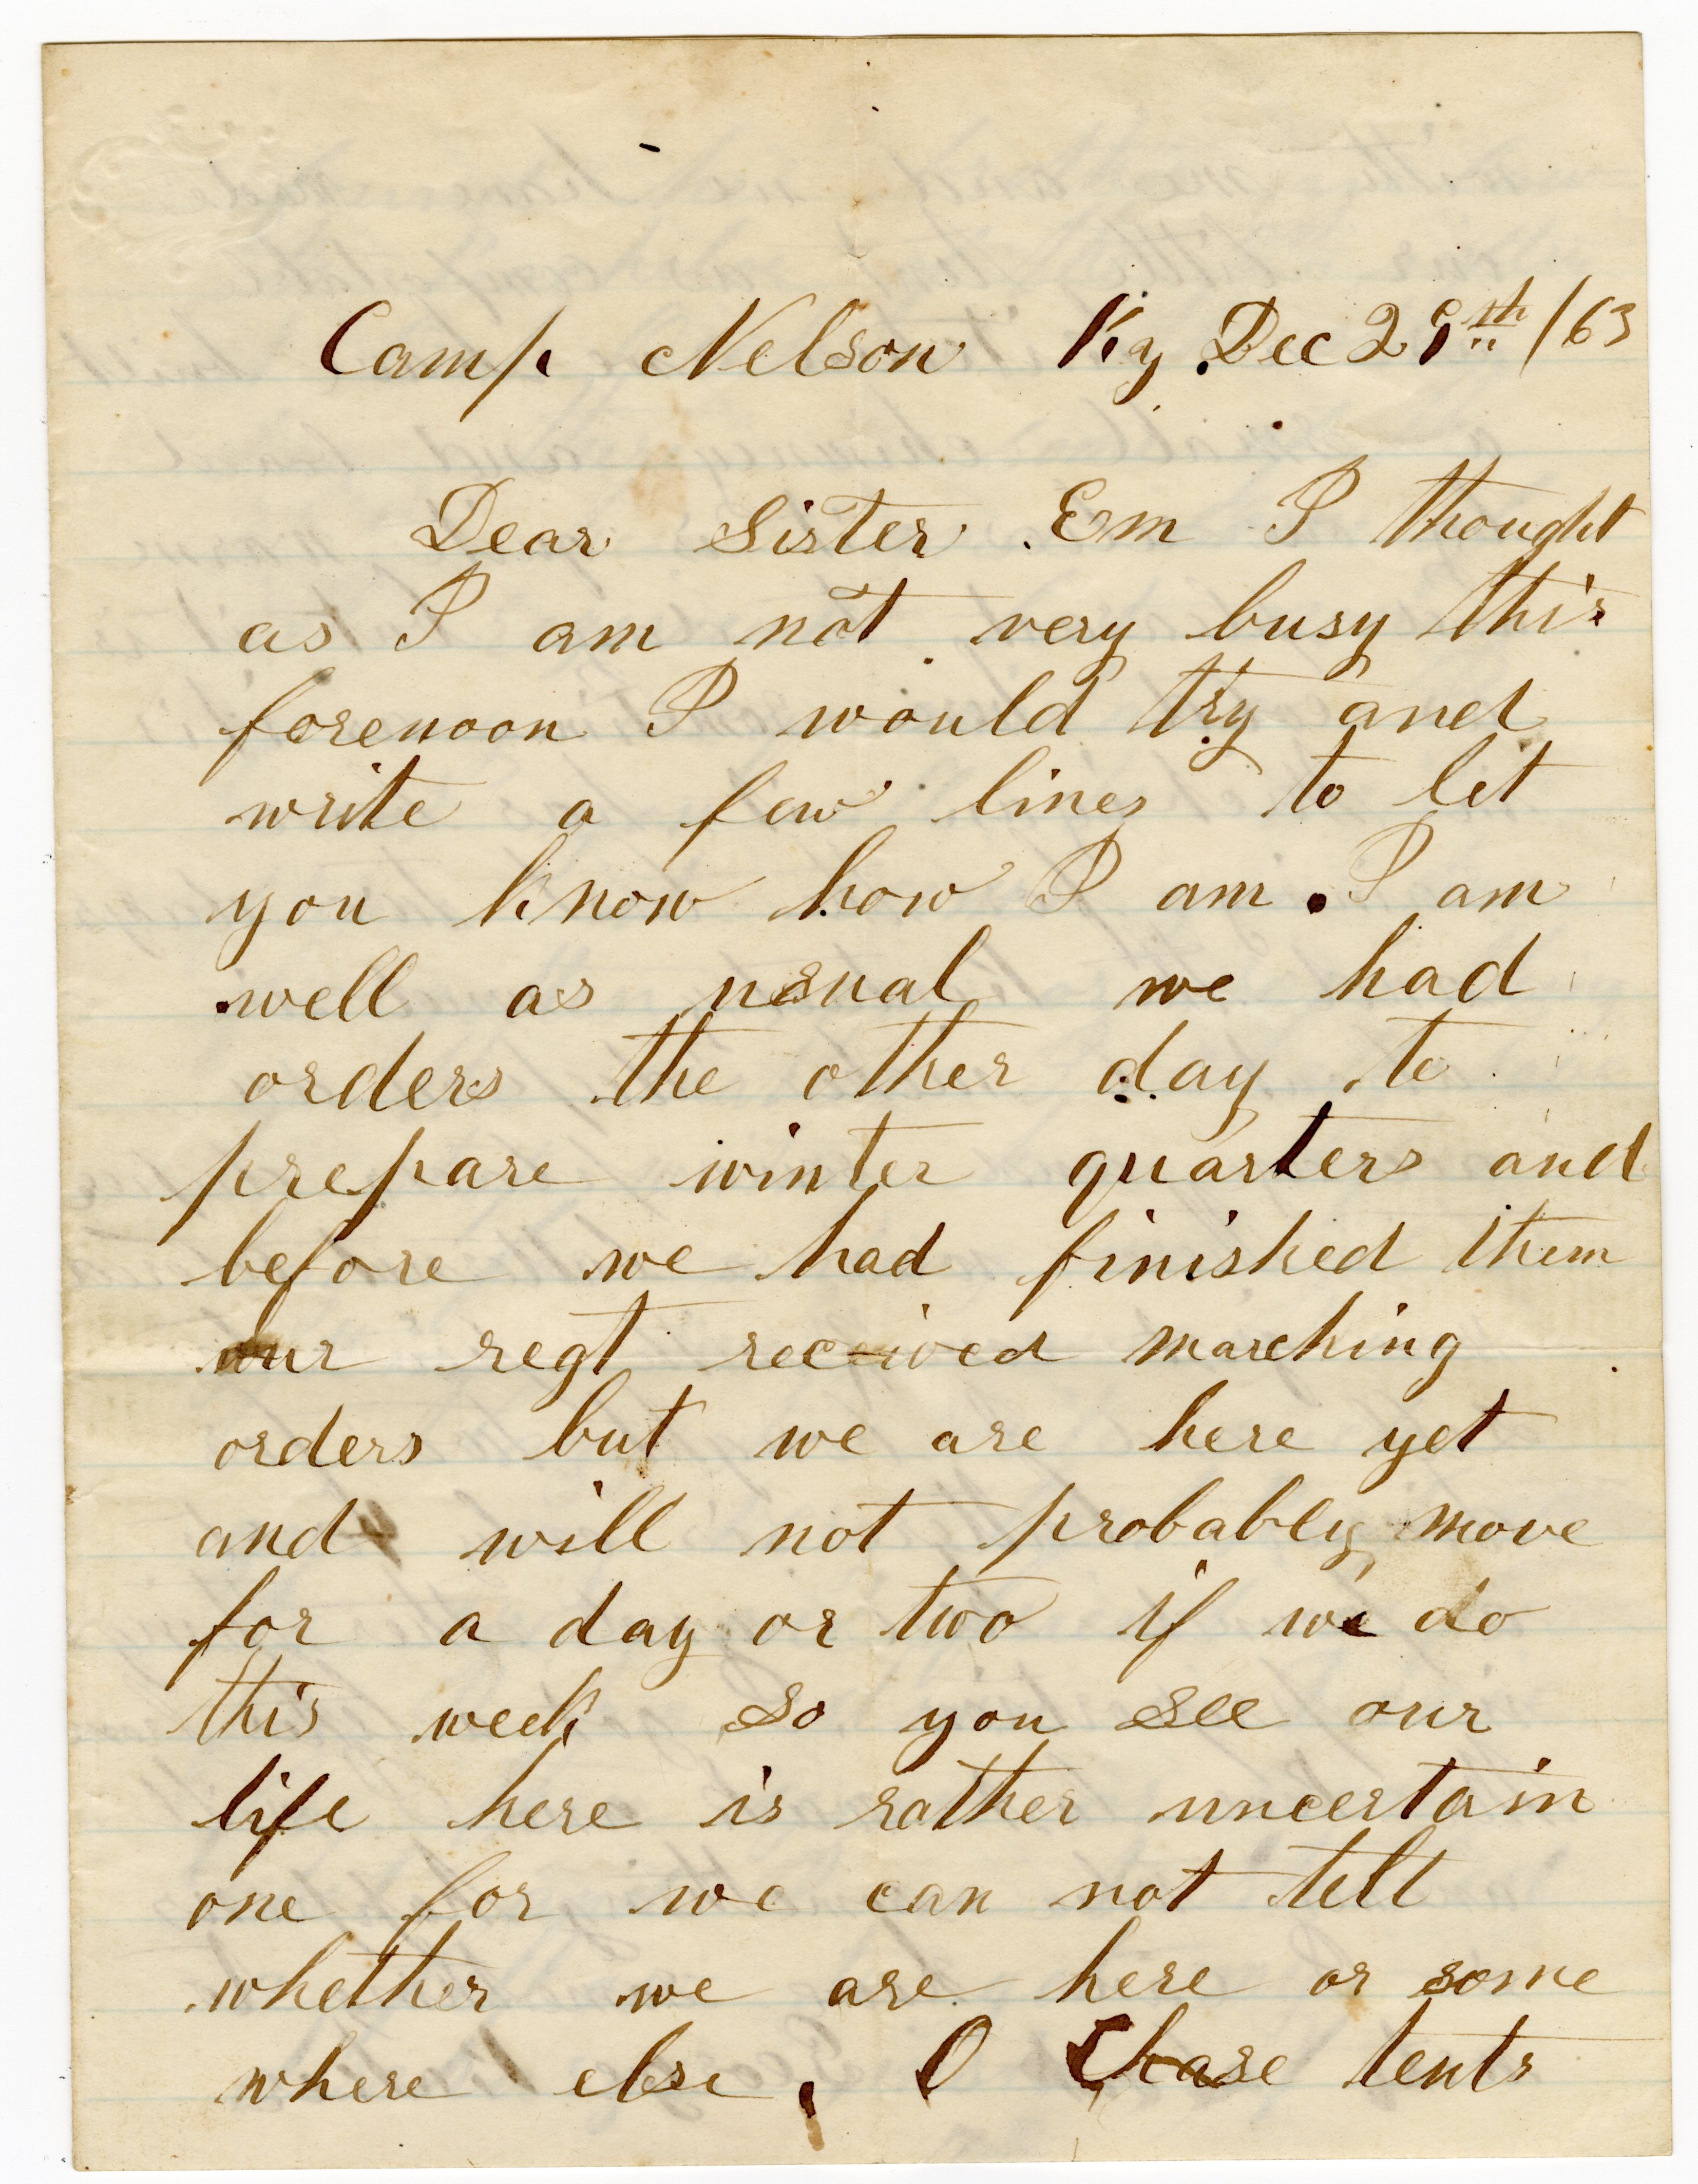 Camp Nelson Ky Dec 29th /63
Dear Sister Em I thought
as I am not very busy this
forenoon I would try and
write a few lines to let
you know how I am. I am
well as usual we had
orders the other day to
prepare winter quarters and
before we had finished them
our regt received marching
orders but we are here yet
and will not probably move
for a day or two if we do
this week so you see our
life here is rather uncertain
one for we can not tell
whether we are here or some
where else. O Chase tents